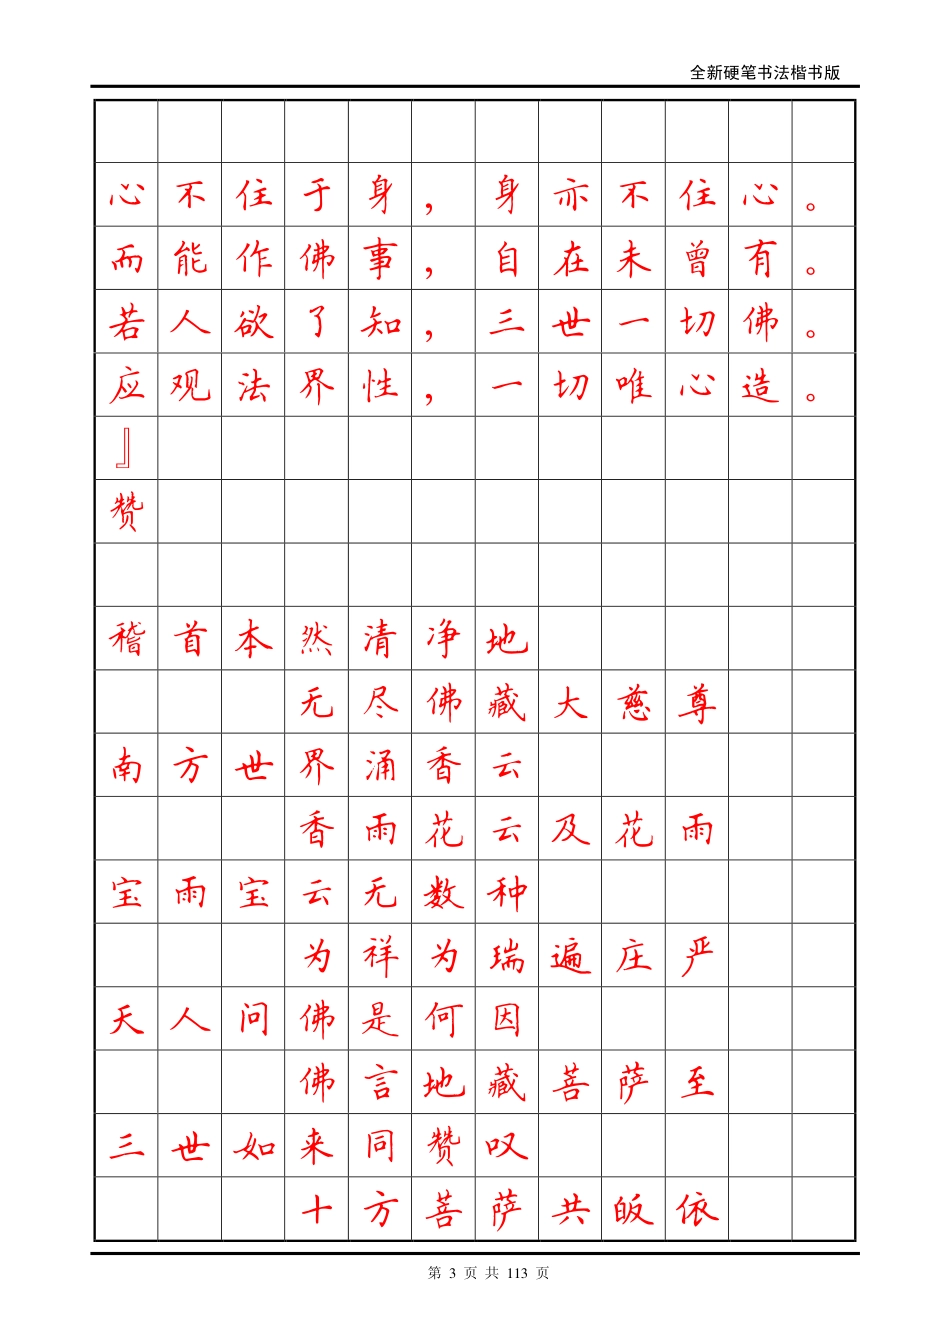 全新硬笔书法楷书版
心不住于身，身亦不住心。
而能作佛事，自在未曾有。
若人欲了知，三世一切佛。
应观法界性，一切唯心造。
』
赞
稽首本然清净地
无尽佛藏大慈尊
南方世界涌香云
香雨花云及花雨
宝雨宝云无数种
为祥为瑞遍庄严
天人问佛是何因
佛言地藏菩萨至
三世如来同赞叹
十方菩萨共皈依
第 3 页 共 113 页